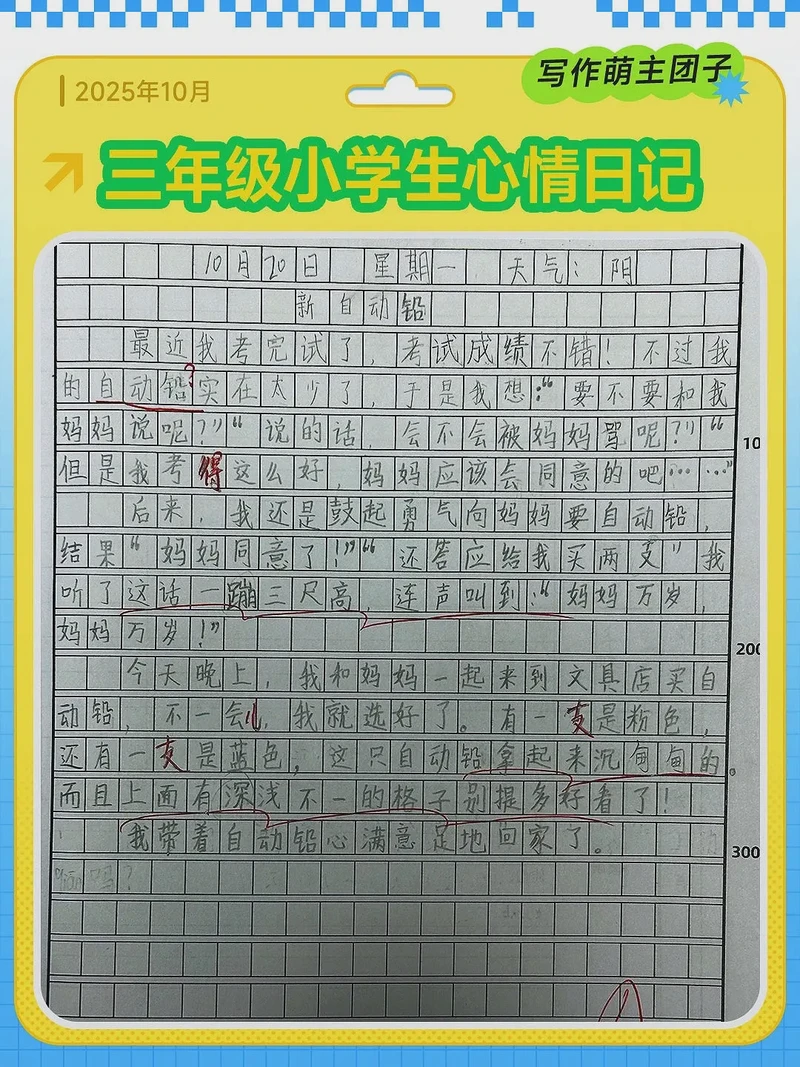 2025年10月
写作萌主团子
三年级小学生心情日记
10月20日 星期一 天气：阴
新自动铅
最近我考完试了，考试成绩不错！不过我
的自动铅?实在太少了，于是我想：“要不要和我
妈妈说呢？”“说的话，会不会被妈妈骂呢？”“
但是我考得这么好，妈妈应该会同意的吧……”
后来，我还是鼓起勇气向妈妈要自动铅，
结果“妈妈同意了！”“还答应给我买两支”我
听了这话一蹦三尺高，连声叫到：“妈妈万岁，
妈妈万岁！”
今天晚上，我和妈妈一起来到文具店买自
动铅，不一会儿，我就选好了。有一支是粉色，
还有一支是蓝色，这只自动铅拿起来沉甸甸的。
而且上面有深浅不一的格子别提多好看了！
我带着自动铅心满意足地回家了。
吗？
100
200
300